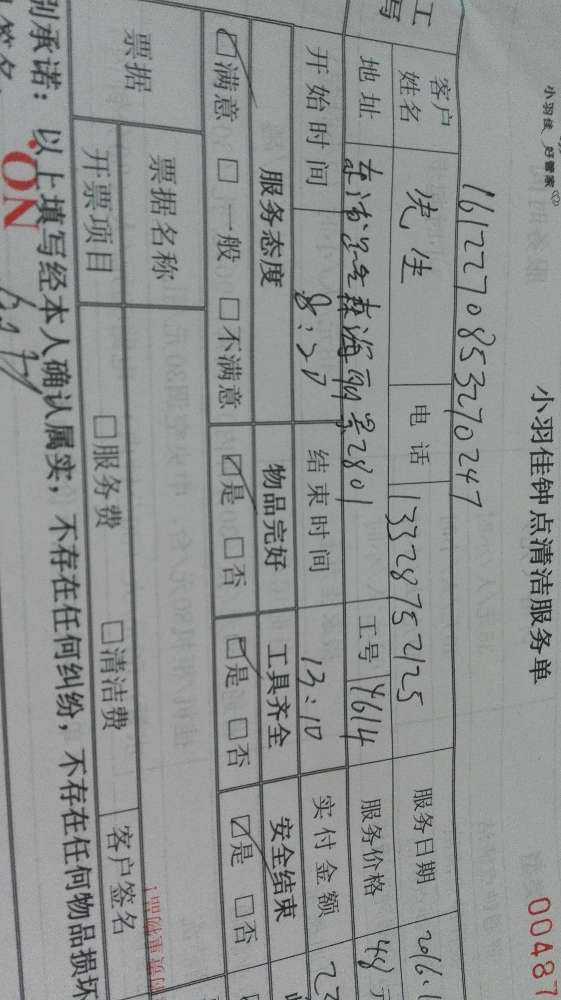 小羽佳 好管家
小羽佳钟点清洁服务单
00487
1612270853270247
客户姓名 先生 电话 13328752125 服务日期 2016.1
地址 森海丽景2801 工号 4614 服务价格 48元
开始时间 8:20 结束时间 13:10 实付金额
服务态度 物品完好 工具齐全 安全结束
☑满意 □一般 □不满意 ☑是 □否 ☑是 □否 ☑是 □否
票据 票据名称
开票项目 □服务费 □清洁费 客户签名
别承诺：以上填写经本人确认属实，不存在任何纠纷，不存在任何物品损坏
NO.